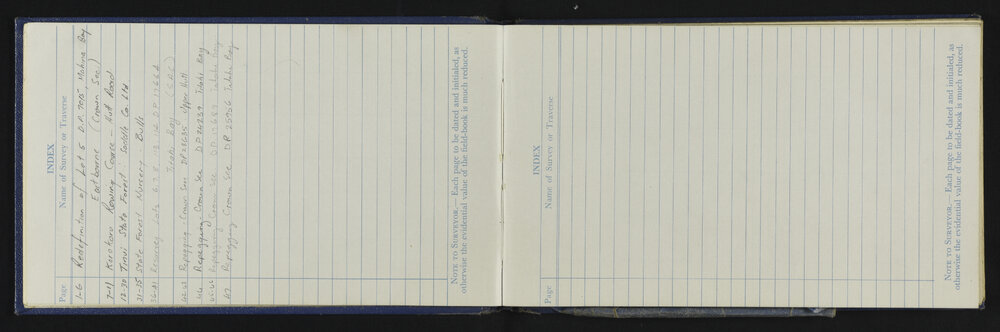 INDEX
Page Name of Survey or Traverse
1-6 Redefinition of Lot 5 D.P. 7015, Mahina Bay
Eastbourne (Crown Sec)
7-11 Korokoro Rowing Course - Hutt Road
12-30 Timui State Forest Saddle Co. Ltd
31-35 State Forest Nursery Bulls
Lots 6 7 8 D.P.
Titahi Bay
Repegging Crown Sec DP 28635 Upper Hutt
46 Repegging Crown Sec DP 24239 Titahi Bay
Repegging Crown Sec Titahi Bay
47 Repegging Crown Sec DP 25956 Titahi Bay
NOTE TO SURVEYOR.— Each page to be dated and initialed, as
otherwise the evidential value of the field-book is much reduced.
INDEX
Page Name of Survey or Traverse
NOTE TO SURVEYOR.— Each page to be dated and initialed, as
otherwise the evidential value of the field-book is much reduced.